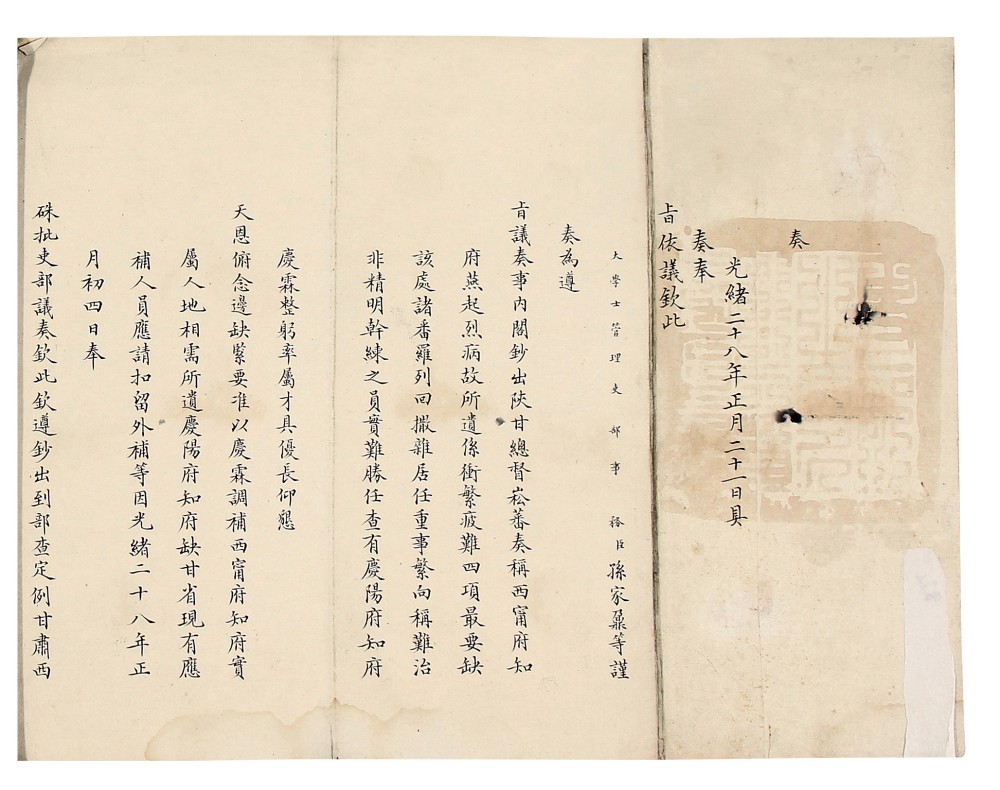 奏
光緒二十八年正月二十一日具
奏奉
旨依議欽此
大學士管理吏部事務臣孫家鼐等謹
奏為遵
旨議奏事內閣鈔出陝甘總督崧蕃奏稱西甯府知
府燕起烈病故所遺係衝繁疲難四項最要缺
該處諸番羅列回撒雜居任重事繁向稱難治
非精明幹練之員實難勝任查有慶陽府知府
慶霖整躬率屬才具優長仰懇
天恩俯念邊缺緊要准以慶霖調補西甯府知府實
屬人地相需所遺慶陽府知府缺甘省現有應
補人員應請扣留外補等因光緒二十八年正
月初四日奉
硃批吏部議奏欽此欽遵鈔出到部查定例甘肅西